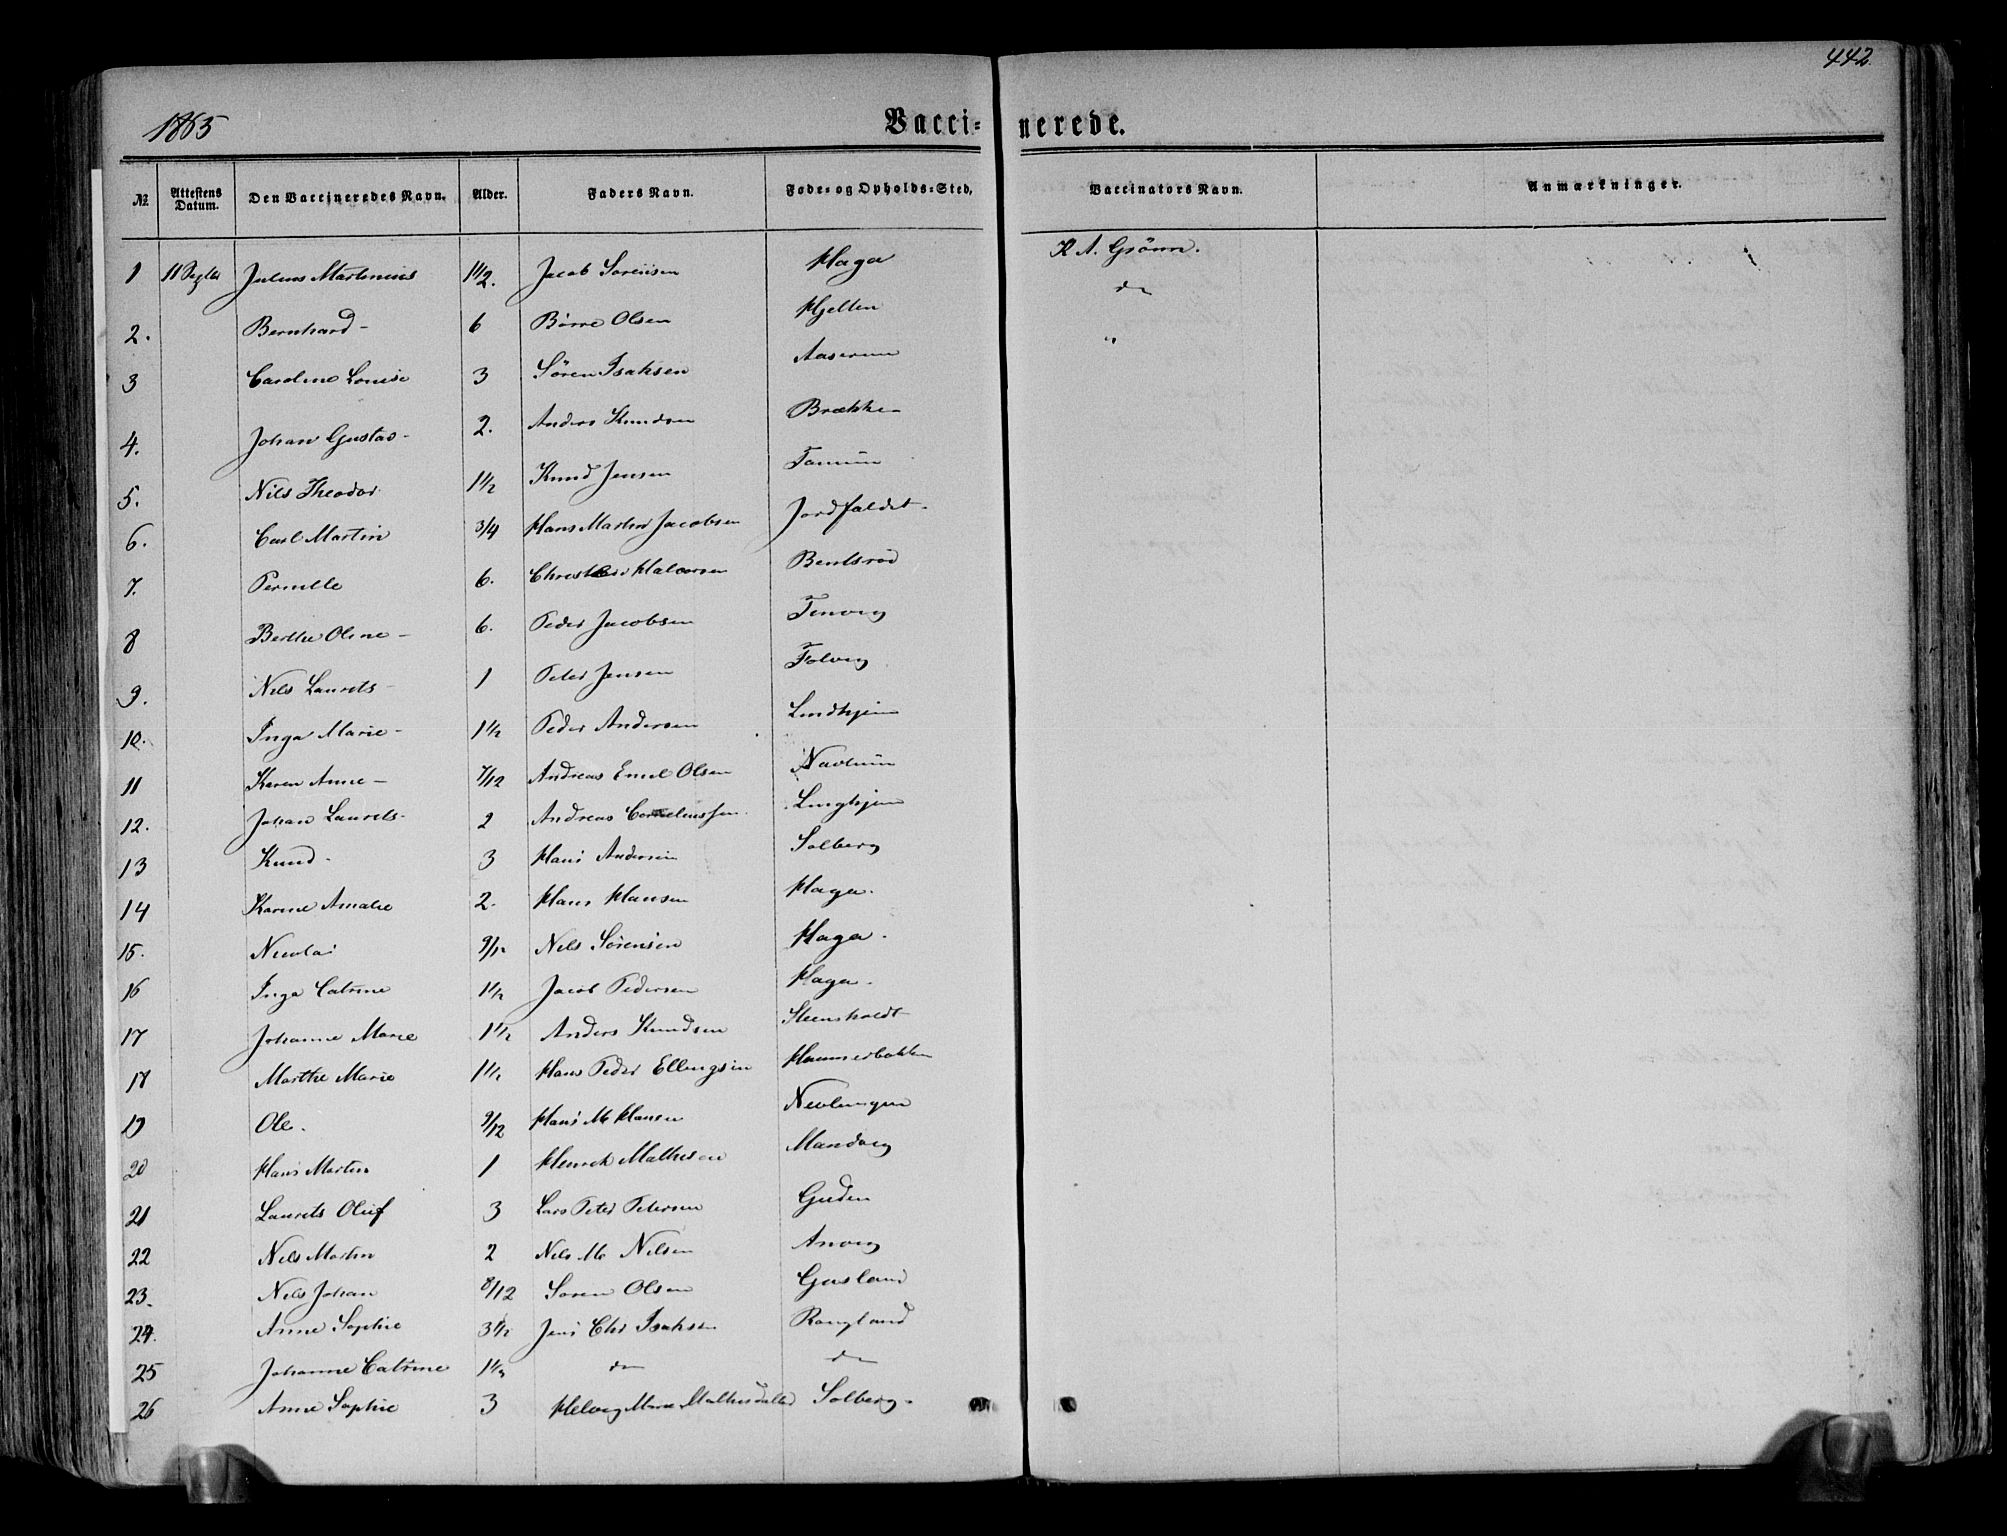 442.
1865 Vaccinerede.
№ Attestens Datum. Den Vaccineredes Navn. Alder. Faders Navn. Føde- og Opholds-Sted, Vaccinators Navn. Anmærkninger.
1 11 Julius Martinius 1 1/2. Jacob Sörensen Haga A. Grönn.
2. Bernhard - 6 Börre Olsen Hjelten do
3 Caroline Louise 3 Sören Isaksen Aaserum "
4. Johan Gustav - 2. Anders Knudsen Brække -
5. Nils Theodor 1 1/2 Knud Jensen Famum
6. Carl Martin 3/4 Hans Martin Jacobsen Jordfaldet -
7. Pernille 6. Halvorsen Bentsröd
8 Berthe Oline - 6. Peder Jacobsen Tenvig
9. Nils Laurits - 1 Peter Jensen Folvig
10. Inga Marie - 1 1/2 Peder Andersen Lindhjem
11 Karen Anne - 7/12 Andreas Emil Olsen Navlum
12. Johan Laurits - 2 Andreas Corneliussen Linghjem
13 Knud - 3 Hans Andersen Solberg
14 Karine Amalie 2. Hans Hansen Haga.
15. Nicolai 9/12 Nils Sörensen Haga.
16 Inga Catrine 1 1/2 Jacob Pedersen Haga.
17 Johanne Marie 1 1/2 Anders Knudsen Steensholdt
18 Marthe Marie 1 1/2 Hans Peder Ellingsen Hammerbakken
19 Ole. 9/12 Hans M Hansen Nevlungen
20 Hans Martin 1 Henrik Mathisen Mandvig
21 Laurits Oluf 3 Lars Peter Petersen Guden
22 Nils Martin 2 Nils M Nilsen Anvig
23. Nils Johan 8/12 Sören Olsen Gusland
24. Anne Sophie 3 1/2 Jens Chr Isaksen Ronglund
25 Johanne Catrine 1 1/2 do do
26 Anne Sophie 3 Helvig Marie Mathisdatter Solberg -